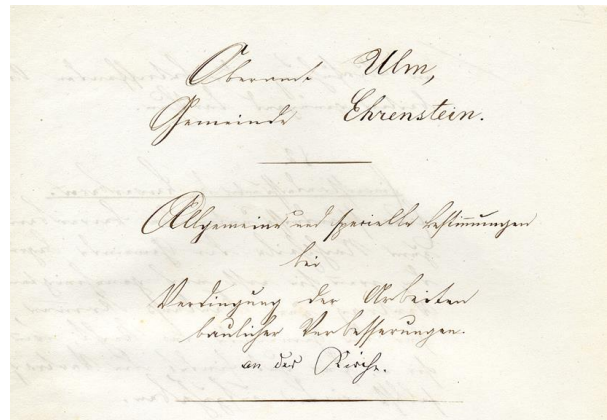 Oberamt Ulm,
Gemeinde Ehrenstein.
Allgemeine und spezielle Bestimmungen
bei
Verdingung der Arbeiten
baulicher Verbesserungen.
an der Kirche.